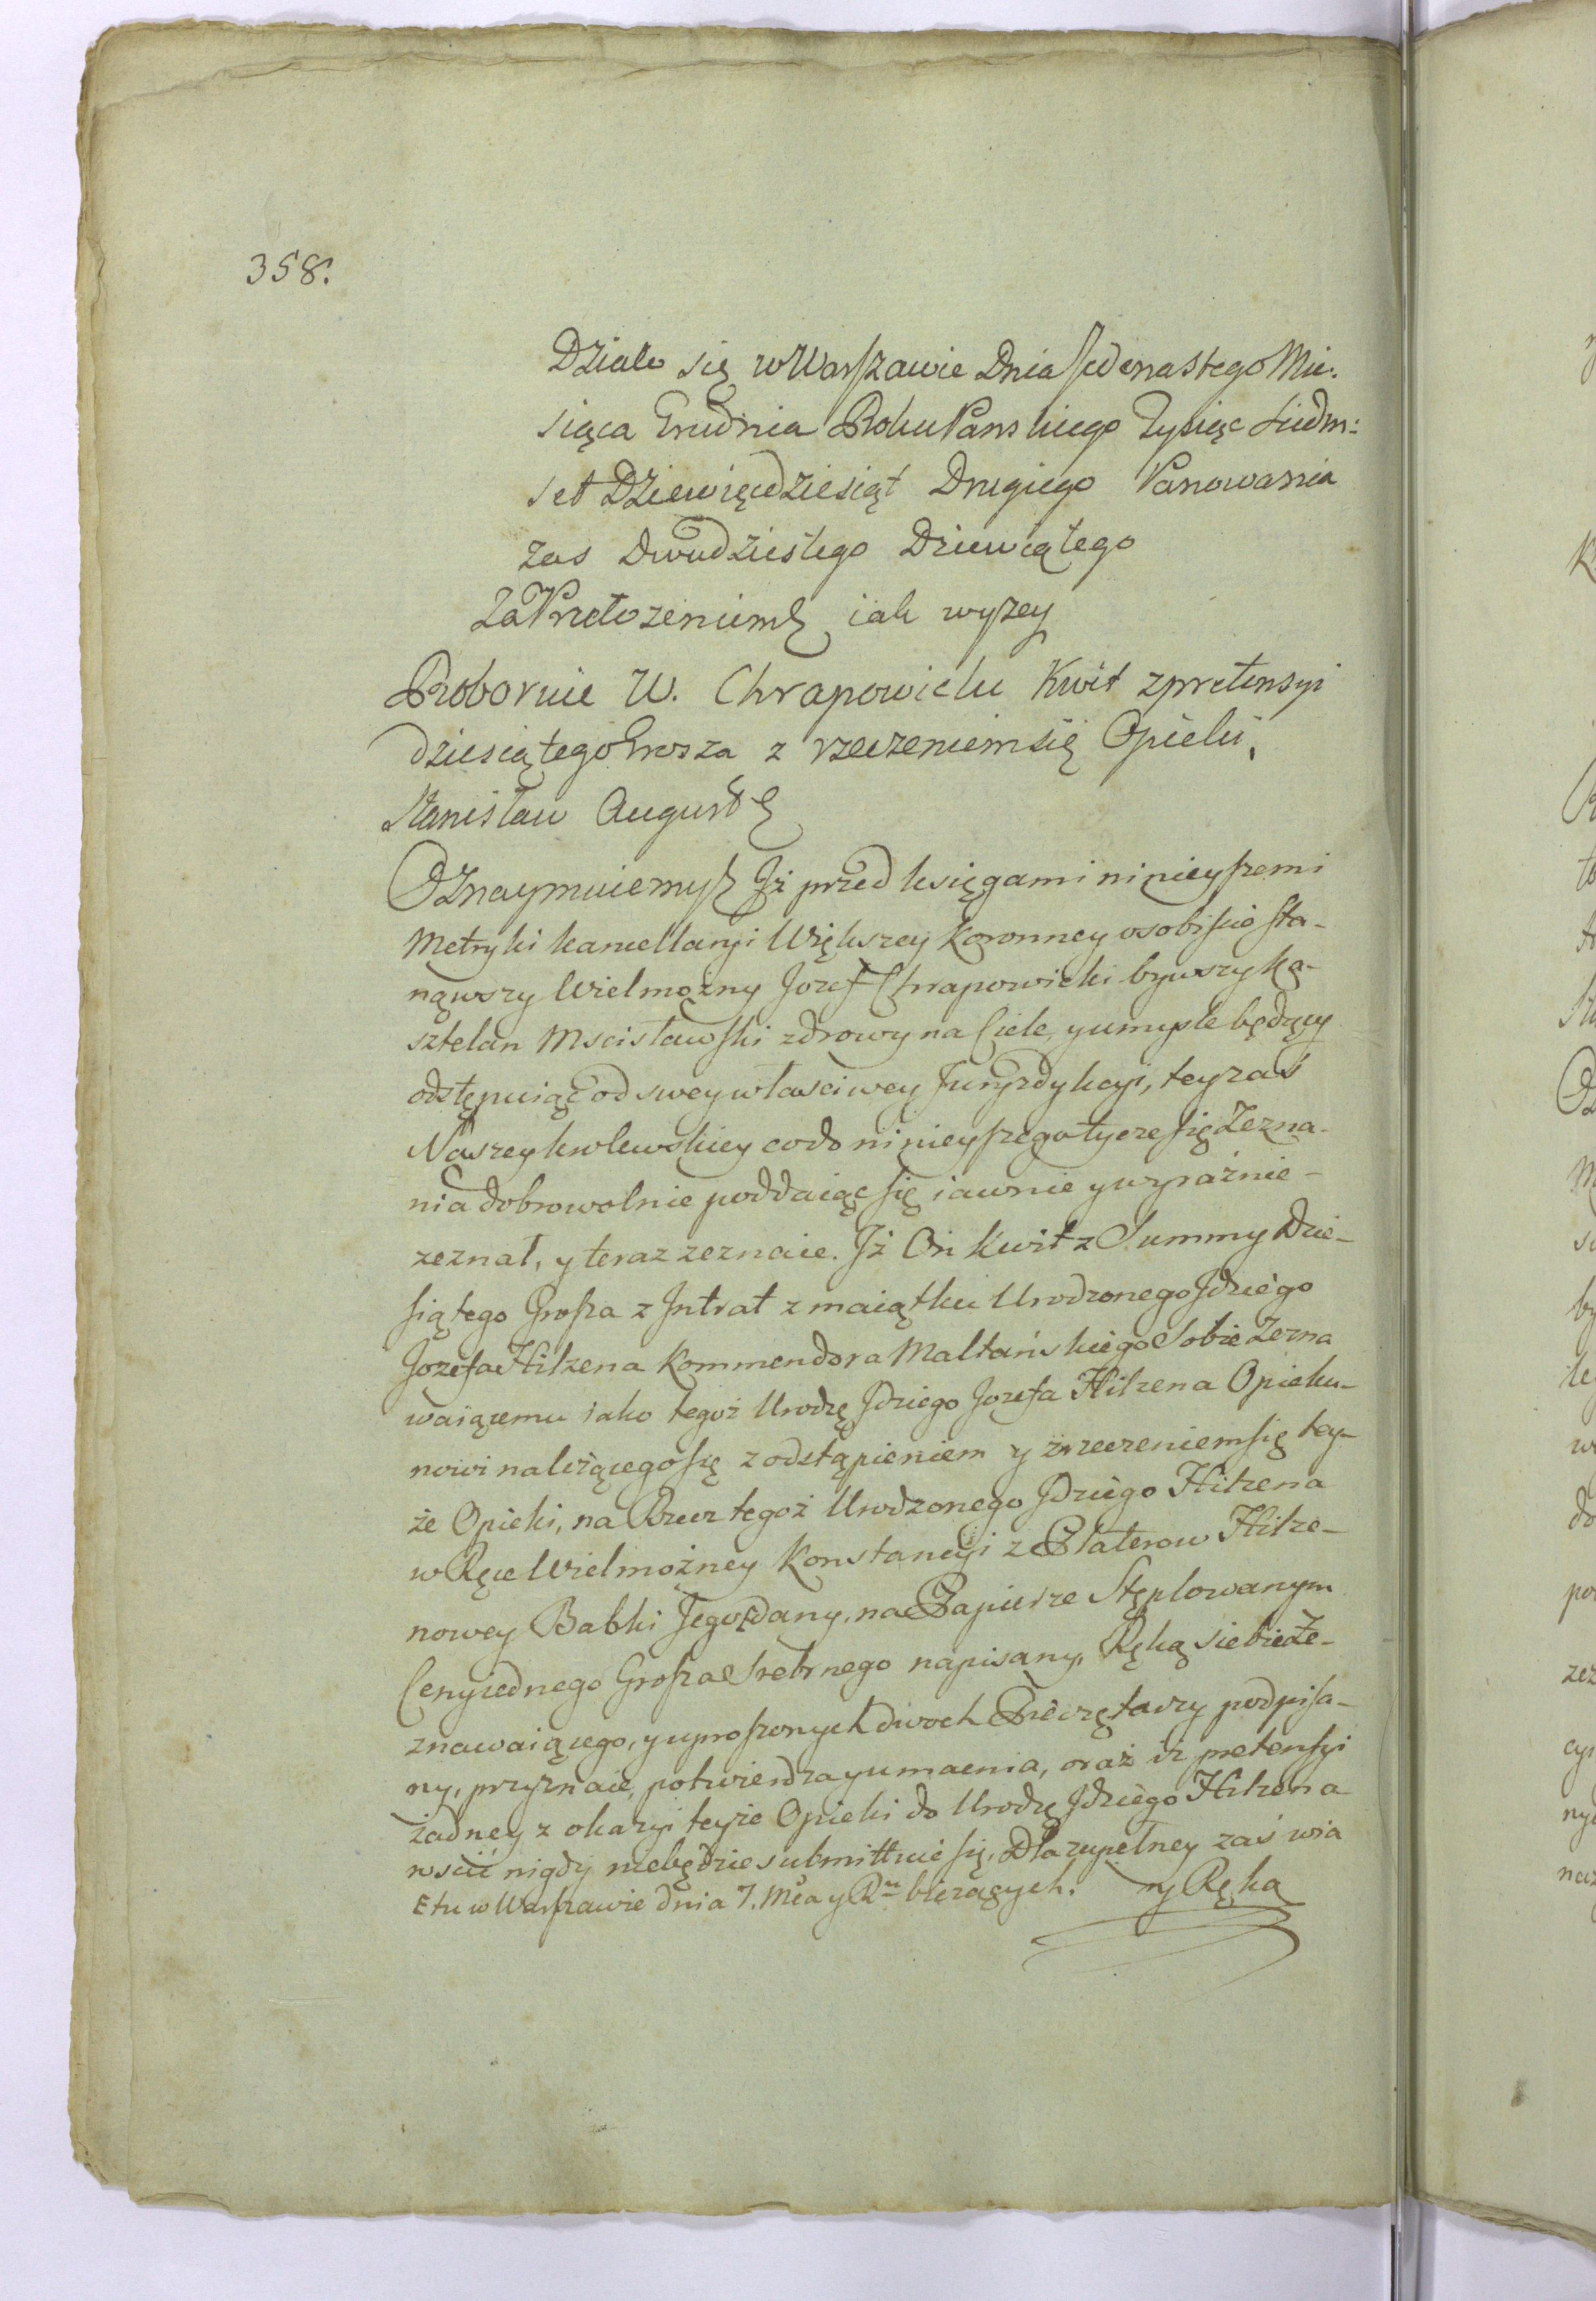 358.
Działo się w Warszawie Dnia Jedenastego Mie-
siąca Grudnia Roku Panskiego Tysiąc siedm:
set Dziewięcdziesiąt Drugiego Panowania
zas Dwudziestego Dziewiątego
Za Przełozeniem iak wyzey
Roboruie W. Chrapowicku Kwit z pretensyi
dziesiątego Grosza z rzeczeniem się Opieki,
Stanisław August
Oznaymuiemy Iż przed księgami ninieyszemi
Metryki kancellaryi Większey Koronney osobiście sta-
nąwszy Wielmożny Jozef Chrapowicki bywszy ka-
sztelan Mscisławski zdrowy na Ciele, y umyśle będący
odstępuiąc od swey właściwey Jurysdykcyi, tey zaś
Naszey krolewskiey co do ninieyszego tycze się Zezna-
nia dobrowolnie poddaiąc się iawnie y wyraźnie-
zeznał, y teraz zeznaie. Iż On kwit z Summy Dzie-
siątego Grosza z Intrat z maiątku Urodzonego Idziego
Jozefa Hilzena Kommendora Maltańskiego Sobie Zezna
waiącemu iako tegoż Urodzę Idziego Jozefa Hilzena Opieku-
nowi należącego się z odstąpieniem y zrzeczeniem się tey-
że Opieki, na Rzecz tegoż Urodzonego Idziego Hilzena
w Ręce Wielmożney Konstancyi z Platerow Hilze-
nowey Babki Jego dany, na Papierze Stęplowanym
Ceny iednego Grosza Srebrnego napisany, Ręką siebie Ze-
znawaiącego, y uproszonych dwoch Pieczętarzy podpisa-
ny, przyznaie, potwierdza y umacnia, oraz iż pretensyi
żadney z okazyi teyże Opieki do Urodzę Idziego Hilzena
rościć nigdy niebędzie submittuie się, Dla zupełney zaś wia
Etu w Warszawie dnia 7. Mca y Ru bieżących. ry Ręką